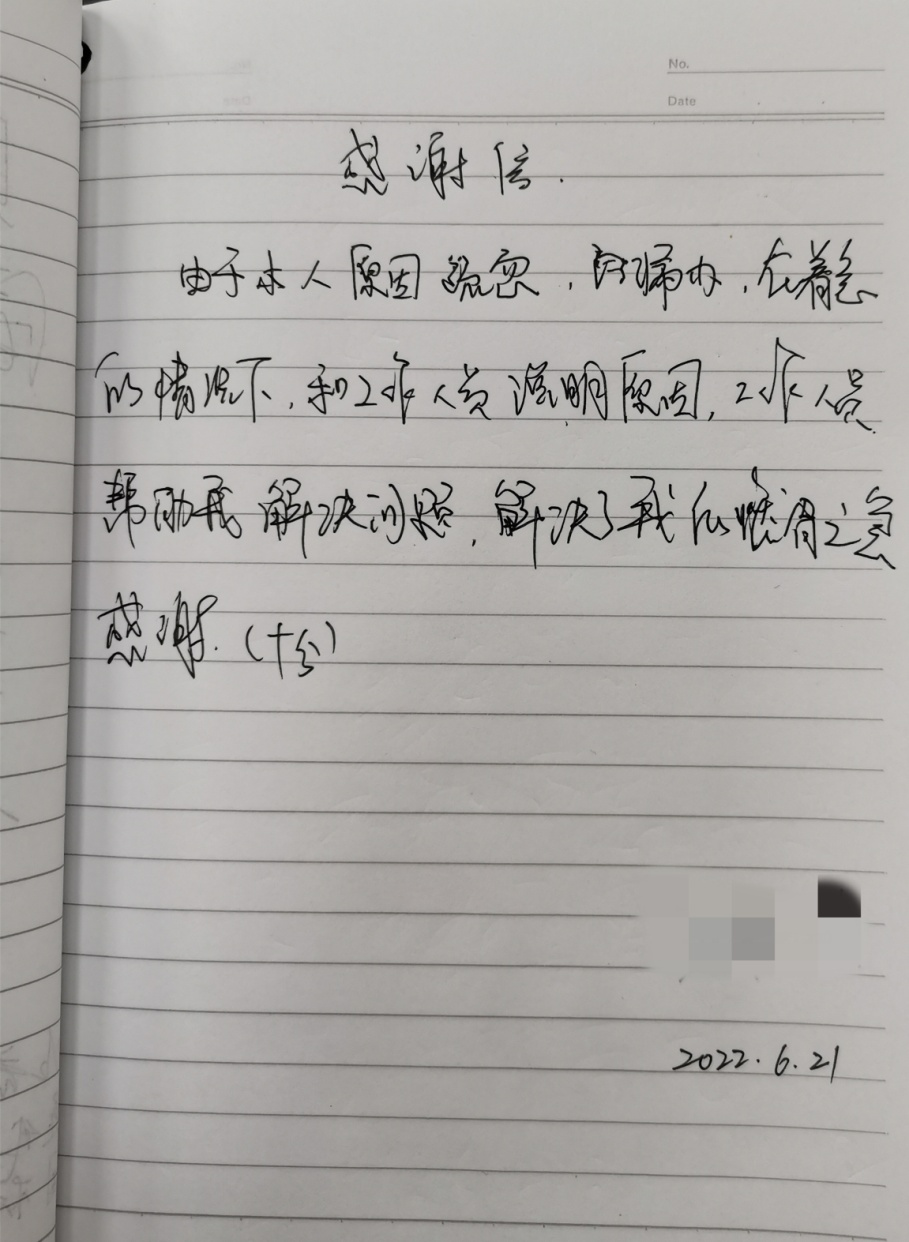 No.
Date
感谢信.
由于本人原因疏忽，，在着急
的情况下，和工作人员说明原因，工作人员
帮助我解决问题，解决了我的燃眉之急
感谢.（十分）
2022.6.21